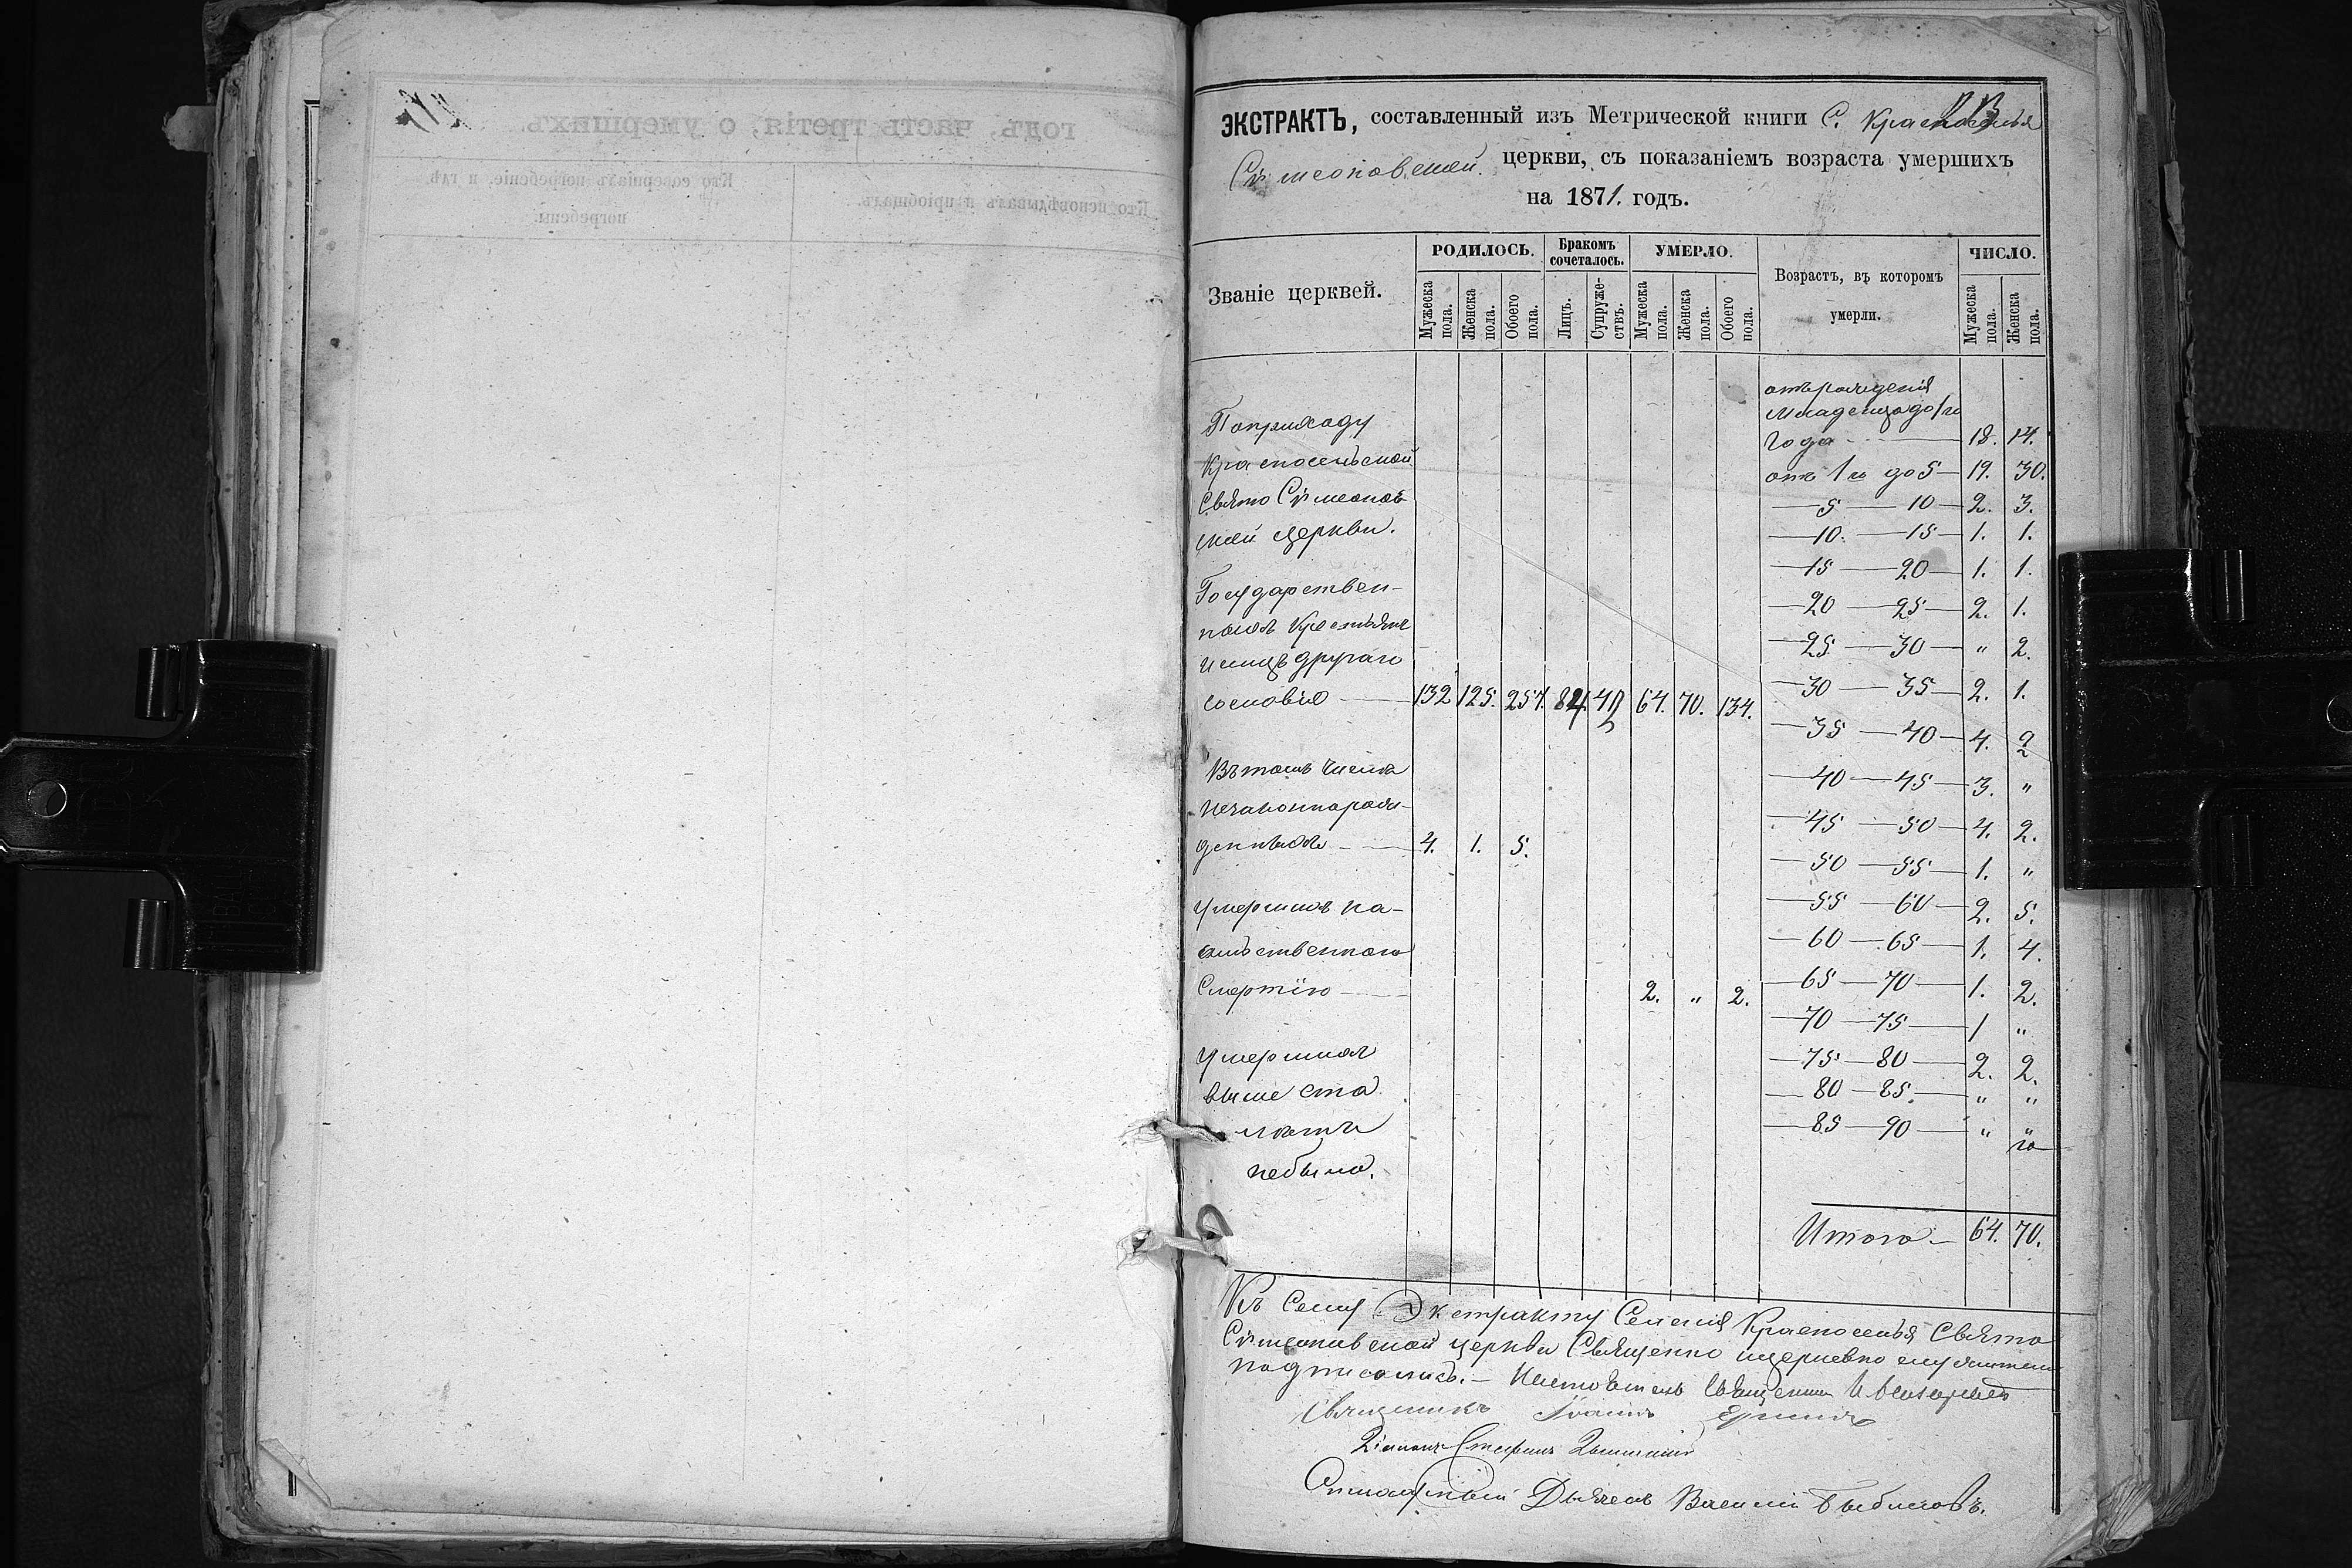 ЭКСТРАКТЪ, составленный изъ Метрической книги С. Красноселья
Сѵмеоновской церкви, съ показаніемъ возраста умершихъ
на 1871. годъ.
Званіе церквей.
РОДИЛОСЬ. Бракомъ сочеталось. УМЕРЛО. Возрастъ, въ которомъ умерли. ЧИСЛО.
Мужеска пола. Женска пола. Обоего пола. Лицъ. Супружествъ. Мужеска пола. Женска пола. Обоего пола. Мужеска пола. Женска пола.
По приходу
Красносельской
Свято Сѵмеонов
ской церкви.
Государствен-
ныхъ Крестьянъ
и лицъ другаго
сословія 132 125. 257. 84. 42 64. 70. 134.
Въ томъ числѣ
незаконнорож-
денныхъ 4. 1. 5.
Умершихъ на-
сильственною
Смертію 2. „ 2.
Умершихъ
выше ста
лѣтъ
небыло.
отъ рожденія
младенца до 1го
года 18. 14.
отъ 1го до 5 19. 30.
5 10 2. 3.
10. 15 1. 1.
15 20 1. 1.
20 25 2. 1.
25 30 „ 2.
30 35 2. 1.
35 40 4. 2
40 45 3. „
45 50 4. 2.
50 55 1. „
55 60 2. 5.
60 65 1. 4.
65 70 1. 2.
70 75 1 „
75 80 2. 2.
80 85. „ „
85 90 „ „
Итого 64. 70.
Къ Сему Экстракту Селенія Красноселья Свято
Сѵмеоновской церкви Священно и церковно служители
подписались. Настоятель Священник
Священникъ Іоаннъ
Діаконъ Стефанъ
Дьячекъ Василій
годъ, часть третія, о умершихъ.
Кто исповѣдывалъ и пріобщалъ.
Кто совершалъ погребеніе, и гдѣ
погребены.